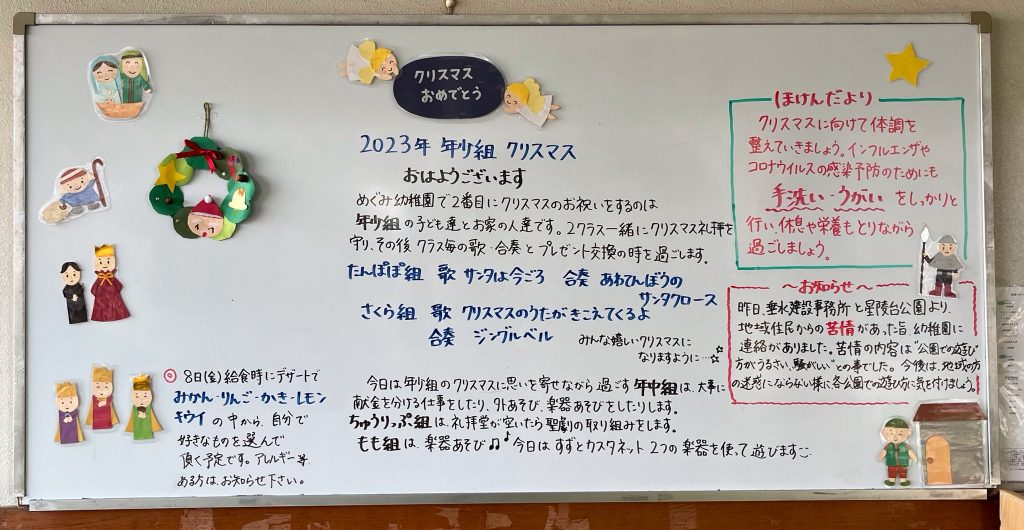 クリスマス
おめでとう
2023年 年少組 クリスマス
おはようございます
めぐみ幼稚園で2番目にクリスマスのお祝いをするのは
年少組の子ども達とお家の人達です。2クラス一緒にクリスマス礼拝を
守り、その後 クラス毎の歌・合奏とプレゼント交換の時を過ごします。
たんぽぽ組 歌 サンタは今ごろ 合奏 あわてんぼうの
サンタクロース
さくら組 歌 クリスマスのうたがきこえてくるよ
合奏 ジングルベル みんな嬉しいクリスマスに
なりますように…☆
今日は年少組のクリスマスに思いを寄せながら過ごす年中組は、大事に
献金を分ける仕事をしたり、外あそび、楽器あそびをしたりします。
ちゅうりっぷ組は、礼拝堂が空いたら聖劇の取り組みをします。
もも組は、楽器あそび♫♪今日はすずとカスタネット 2つの楽器を使って遊びます
◎ 8日(金)給食時にデザートで
みかん・りんご・かき・レモン
キウイ の中から、自分で
好きなものを選んで
頂く予定です。アレルギー等
ある方は、お知らせ下さい。
ほけんだより
クリスマスに向けて体調を
整えていきましょう。インフルエンザや
コロナウイルスの感染予防のためにも
手洗い・うがい をしっかりと
行い、休息や栄養もとりながら
過ごしましょう。
〜お知らせ〜
昨日、垂水建設事務所と星陵台公園より、
地域住民からの苦情があった旨 幼稚園に
連絡がありました。苦情の内容は"公園での遊び
方がうるさい、騒がしい"との事でした。今後は、地域の方
の迷惑にならない様に各公園での遊び方に気を付けましょう。